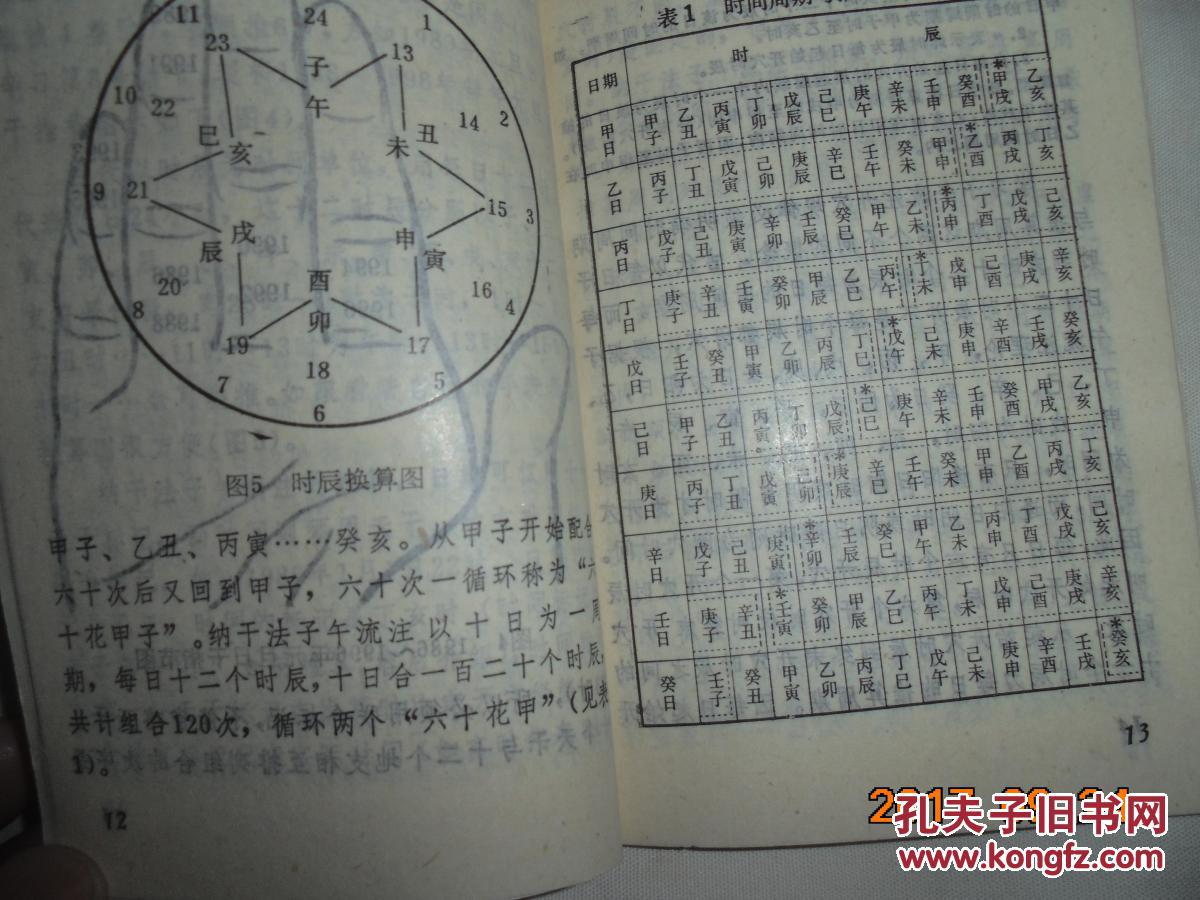 11 24 1
23 13
子
午
10 22 14 2
巳 亥 未 丑
9 21 15 3
戌 辰 申 寅
酉
卯
8 20 16 4
19 17
7 18 5
6
图5 时辰换算图
甲子、乙丑、丙寅……癸亥。从甲子开始配合
六十次后又回到甲子，六十次一循环称为“六
十花甲子”。纳干法子午流注以十日为一周
期，每日十二个时辰，十日合一百二十个时辰，
共计组合120次，循环两个“六十花甲”（见表
1)。
12
表1 时间周期
日期 时 辰
甲日 甲子 乙丑 丙寅 丁卯 戊辰 己巳 庚午 辛未 壬申 癸酉 *甲戌 乙亥
乙日 丙子 丁丑 戊寅 己卯 庚辰 辛巳 壬午 癸未 甲申 *乙酉 丙戌 丁亥
丙日 戊子 己丑 庚寅 辛卯 壬辰 癸巳 甲午 乙未 *丙申 丁酉 戊戌 己亥
丁日 庚子 辛丑 壬寅 癸卯 甲辰 乙巳 丙午 *丁未 戊申 己酉 庚戌 辛亥
戊日 壬子 癸丑 甲寅 乙卯 丙辰 丁巳 *戊午 己未 庚申 辛酉 壬戌 癸亥
己日 甲子 乙丑 丙寅 丁卯 戊辰 *己巳 庚午 辛未 壬申 癸酉 甲戌 乙亥
庚日 丙子 丁丑 戊寅 己卯 *庚辰 辛巳 壬午 癸未 甲申 乙酉 丙戌 丁亥
辛日 戊子 己丑 庚寅 *辛卯 壬辰 癸巳 甲午 乙未 丙申 丁酉 戊戌 己亥
壬日 庚子 辛丑 *壬寅 癸卯 甲辰 乙巳 丙午 丁未 戊申 己酉 庚戌 辛亥
癸日 壬子 癸丑 甲寅 乙卯 丙辰 丁巳 戊午 己未 庚申 辛酉 壬戌 *癸亥
13
孔夫子旧书网
www.kongfz.com